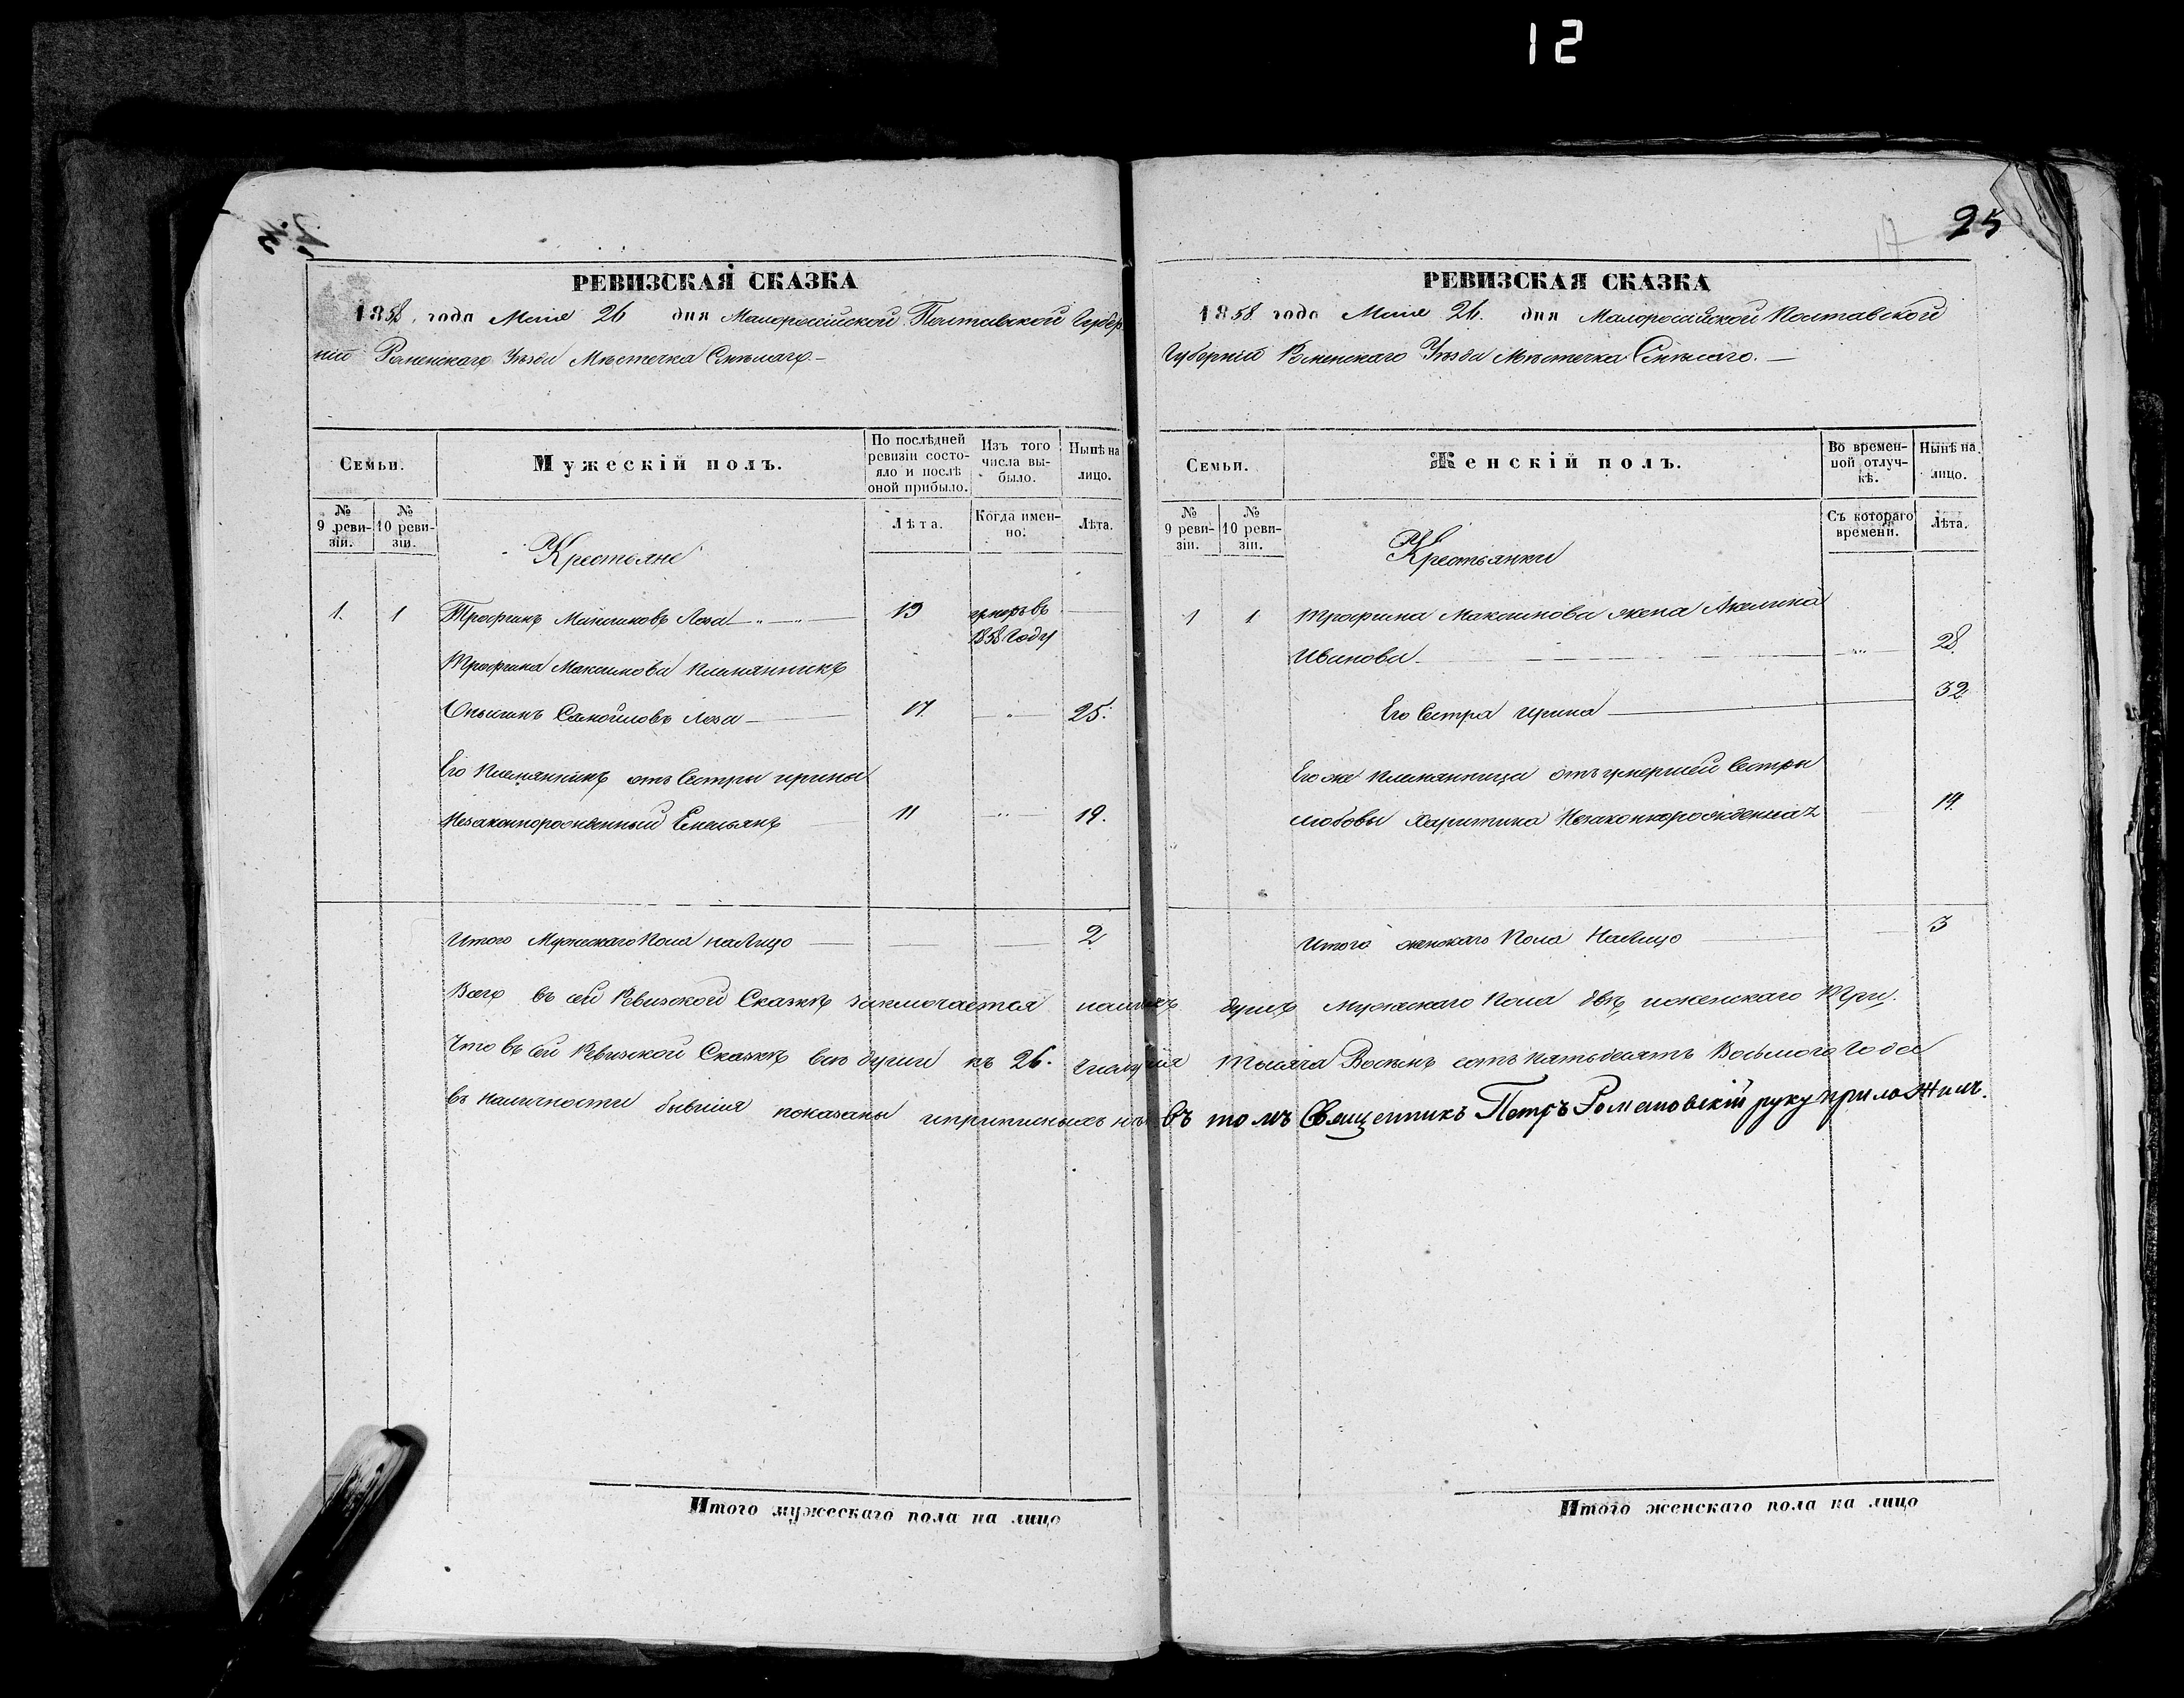 12
25
17
РЕВИЗСКАЯ СКАЗКА
1858 года Маія 26 дня Малороссійской Полтавской Губер
ніи Роменскаго Уѣзда Мѣстечка Смѣлаго.
Семьи.
Мужескій полъ.
По послѣдней ревизіи состояло и послѣ оной прибыло.
Изъ того числа выбыло.
Нынѣ на лицо.
№ 9 ревизіи.
№ 10 ревизіи.
Лѣта.
Когда именно.
Лѣта.
Крестьяне
1. 1 Трофимъ Максимовъ Лоза 19 умеръ въ
1858 Году
Трофима Максимова племянникъ
Самойловъ Лоза 17. 25.
Его племянникъ отъ Сестры Ирины
Незаконнорожденный Емельянъ 11 19.
Итого Мужескаго Пола налицо 2
РЕВИЗСКАЯ СКАЗКА
1858 года Маія 26. дня Малоросійской Полтавской
Губерніи Роменскаго Уѣзда Мѣстечка Смѣлаго.
Семьи.
Женскій полъ.
Во временной отлучкѣ.
Нынѣ на лицо.
№ 9 ревизіи.
№ 10 ревизіи.
Съ котораго времени.
Лѣта.
Крестьянки
1 1 Трофима Максимова жена Акилина
Иванова 28
Его Сестра Ирина 32
Его же племянница отъ умершей Сестры
Любовы Харитина Незаконнорожденная 19.
Итого женскаго Пола Налицо 3
Всего въ сей Ревизской Сказкѣ заключается душъ Мужескаго Пола двѣ и женскаго Три.
Что въ сей Ревизской Сказкѣ всѣ души къ 26. Тысяча Восемь сотъ пятьдесятъ Восьмого Года
въ наличности бывшія показаны и прописныхъ въ томъ Священникъ Петръ Романовскій руку приложилъ.
Итого мужескаго пола на лицо
Итого женскаго пола на лицо